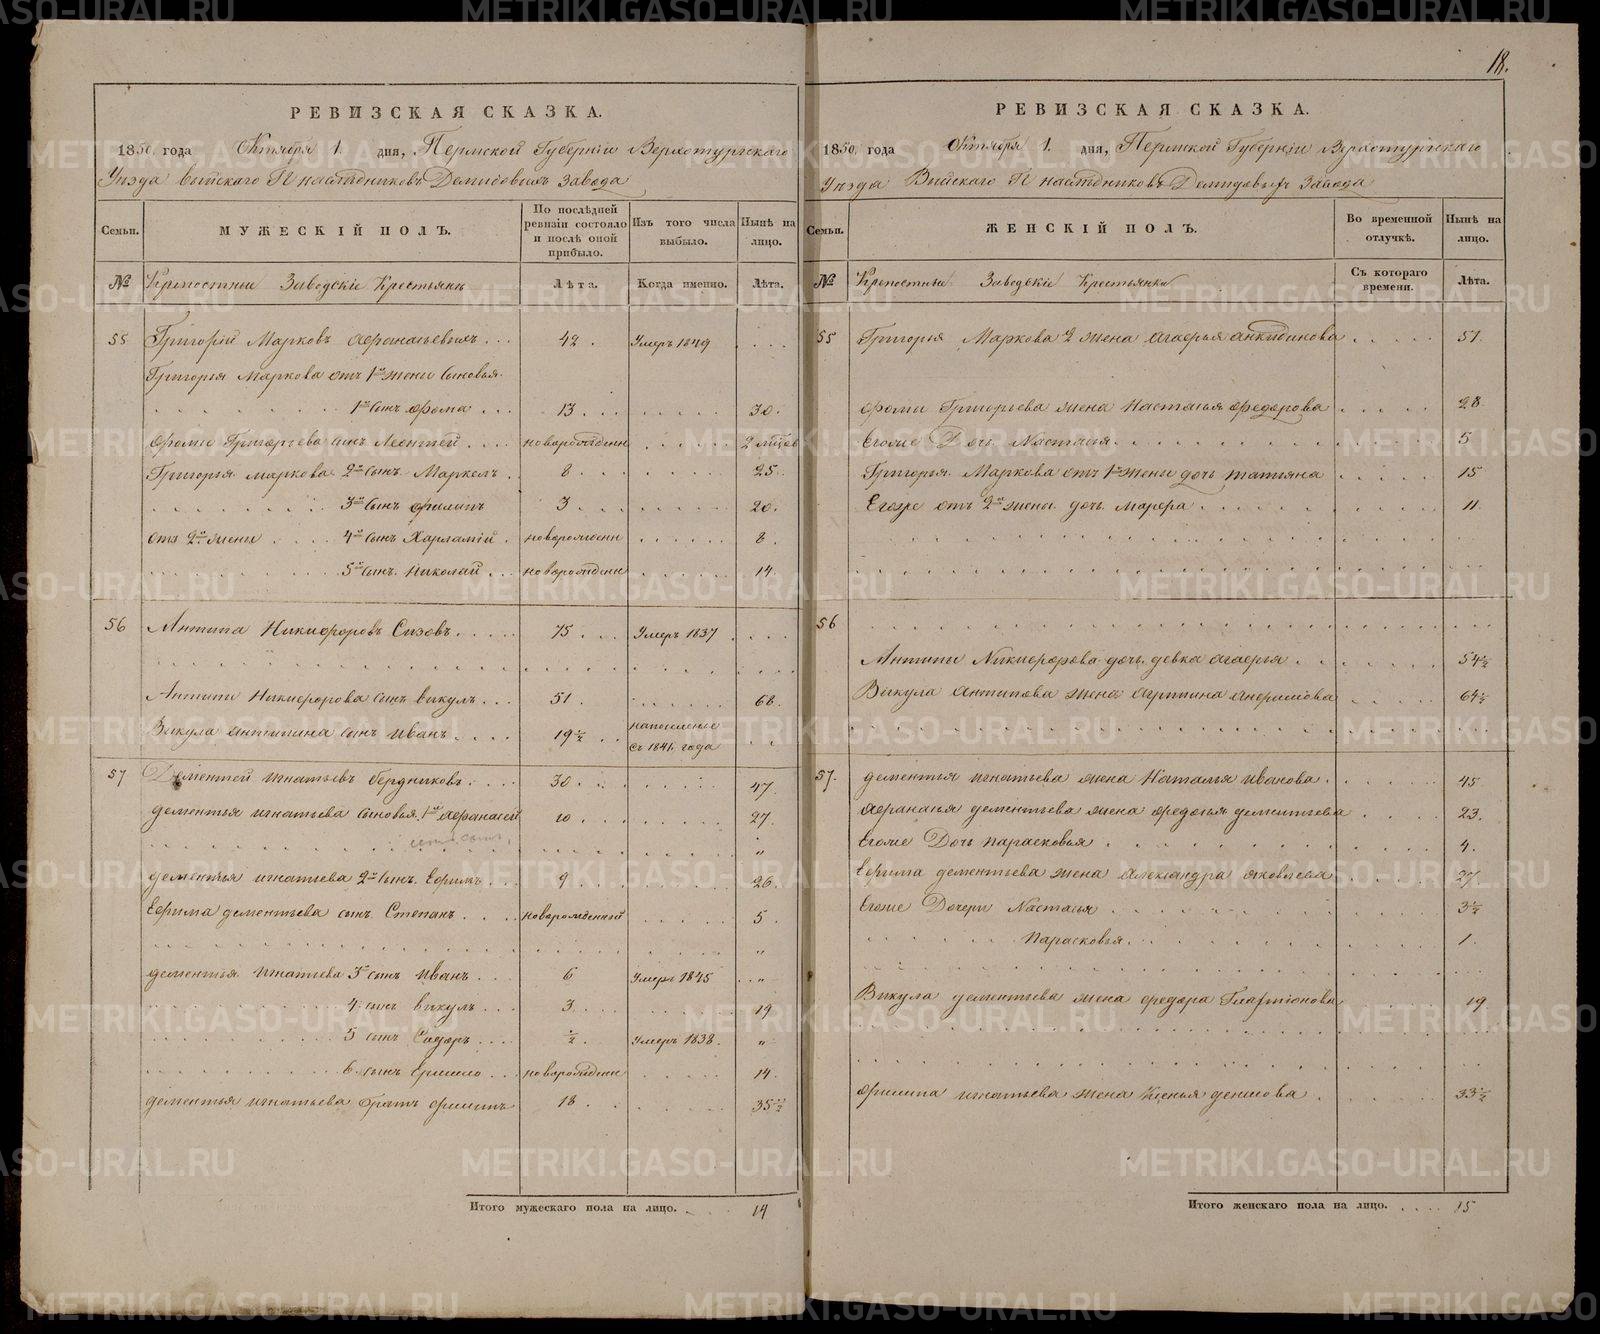 18.
РЕВИЗСКАЯ СКАЗКА.
1850 года Октября 1. дня, Пермской Губерніи Верхотурскаго
Уезда Выйскаго Г. наследниковъ Демидовыхъ Завода
Семьи.
МУЖЕСКІЙ ПОЛЪ.
По послѣдней ревизіи состояло и послѣ оной прибыло.
Изъ того числа выбыло.
Нынѣ на лицо.
№ Крепостныи Заводскіе Крестьяне
Лѣта.
Когда именно.
Лѣта.
55 Григорій Марковъ Афанасьевыхъ . . . 42 . Умеръ 1849 . . .
Григорья Маркова отъ 1й жены Сыновья
1й Сынъ Фома . . . 13 . . . 30.
Фомы Григорьева сынъ Леонтей . . . новорожденн . . . 2 мѣсяц
Григорья Маркова 2й Сынъ Маркелъ . 8 . . . 25.
3й Сынъ Филипъ 3 . . . 20.
отъ 2й жены . . . 4й Сынъ Харлампій . новорожденн . . . 8.
5й Сынъ Николай . . . новорожденн . . . 14.
56 Антипа Никифоровъ Сизовъ . . . 75 . . . Умеръ 1837 . . .
Антипы Никифорова сынъ Викулъ . . . 51 . . . 68.
Викула Антипина сынъ Иванъ . . . 19½ . . на поселенье съ 1841 года . .
57 Дементей Игнатьевъ Бердниковъ . . . 30 . . . 47.
Дементья Игнатьева Сыновья 1й Афанасей 10 . . . 27.
"
Дементья Игнатьева 2й Сынъ Ефимъ . . . 9 . . . 26.
Ефима Дементьева сынъ Степанъ . . . новорожденный . . . 5
"
Дементья Игнатьева 3й сынъ Иванъ . . . 6 Умеръ 1845 . . "
4 сынъ Викулъ . . . 3 . . . 19
5 сынъ Сидоръ . . . ½ . Умеръ 1838. "
6. сынъ Ермило . . . новорожденн . . . 14.
Дементья Игнатьева братъ Филипъ 18 . . . 35½
Итого мужескаго пола на лицо. . . . 14
РЕВИЗСКАЯ СКАЗКА.
1850 года Октября 1. дня, Пермской Губерніи Верхотурскаго
Уезда Выйскаго Г. наследниковъ Демидовыхъ Завода
Семьи.
ЖЕНСКІЙ ПОЛЪ.
Во временной отлучкѣ.
Нынѣ на лицо.
№ Крепостныи Заводскіе Крестьянки
Съ котораго времени.
Лѣта.
55 Григорья Маркова 2 жена Агафья Анкидинова . . . 51.
Фомы Григорьева жена Настасья Федорова . . . 28
Егоже Дочь Настасья . . . 5
Григорья Маркова отъ 1й жены дочь Татьяна . . . 15
Егоже отъ 2й жены дочь Марфа . . . 11
56
Антипы Никифорова дочь девка Агафья . . . 54½
Викула Антипова жена Агрипина Анфимова . . . 64½
57. Дементья Игнатьева жена Наталья Иванова . . . 45
Афанасья Дементьева жена Федосья Дементьева . . . 23.
Егоже Дочь Парасковья . . . 4.
Ефима Дементьева жена Александра Яковлева . . . 27
Егоже Дочери Настасья . . . 3½
Парасковья . . . 1.
Викула Дементьева жена Федора Гларионова . . . 19
Филипа Игнатьева жена Ксенья Денисова . . . 33½
Итого женскаго пола на лицо. . . . 15
METRIKI.GASO-URAL.RU